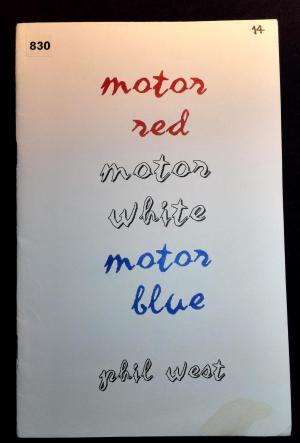 830
14
motor
red
motor
white
motor
blue
phil west